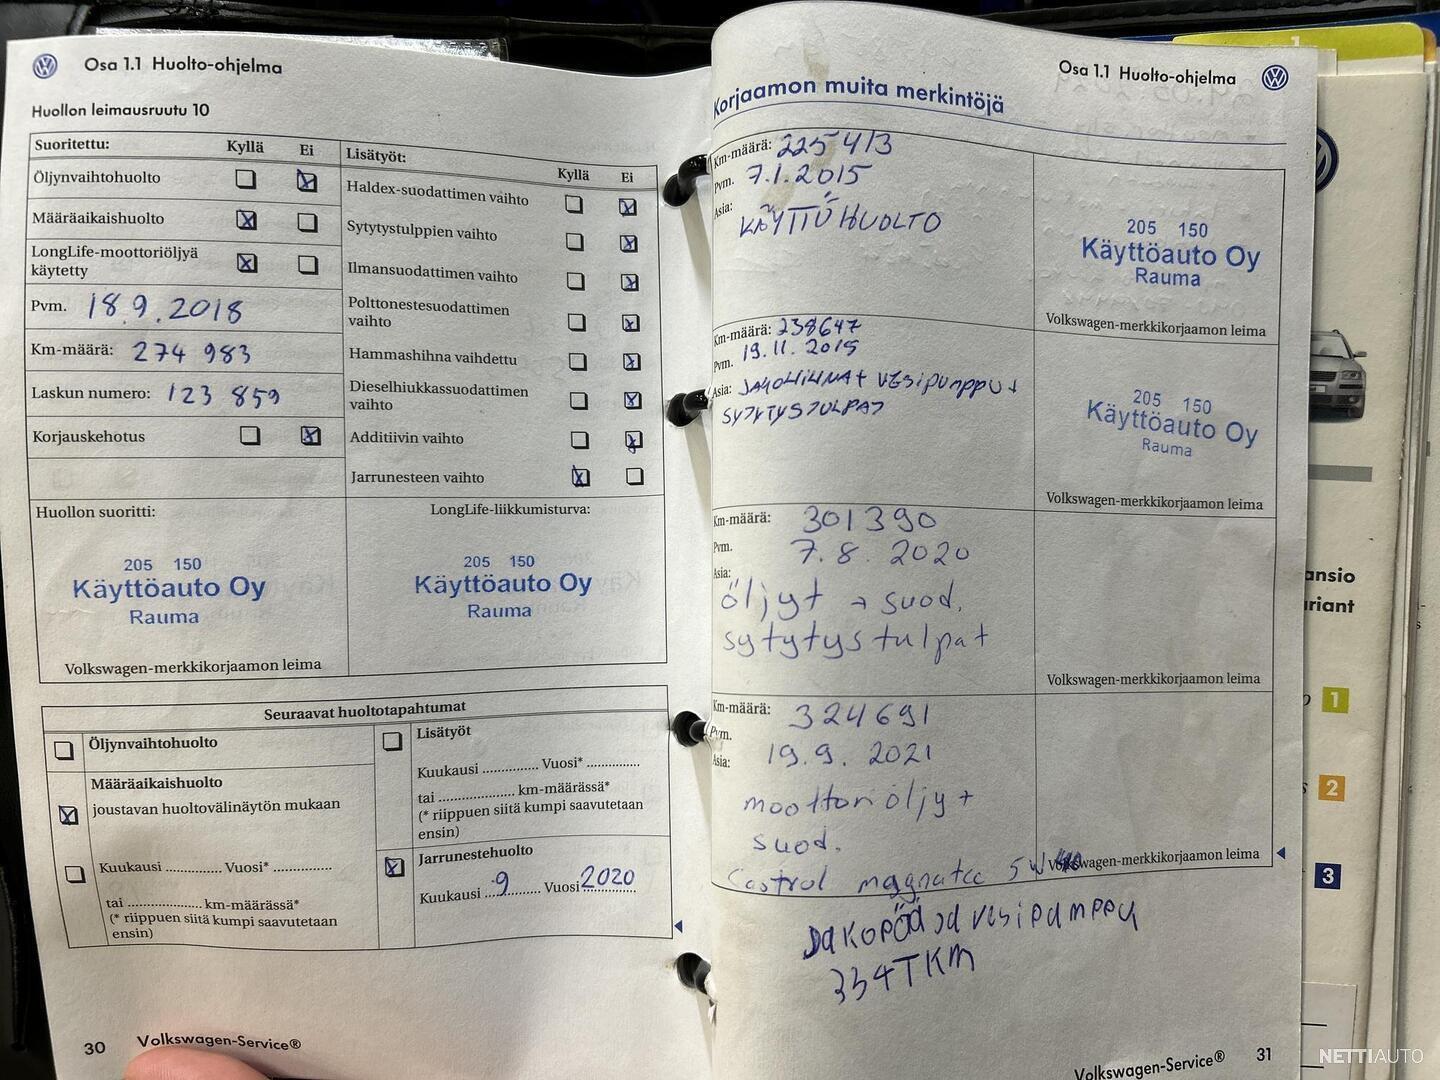 Osa 1.1 Huolto-ohjelma
Huollon leimausruutu 10
Suoritettu: Kyllä Ei
Öljynvaihtohuolto
Määräaikaishuolto
LongLife-moottoriöljyä
käytetty
Pvm. 18.9.2018
Km-määrä: 274 983
Laskun numero: 123 859
Korjauskehotus
Lisätyöt:
Kyllä Ei
Haldex-suodattimen vaihto
Sytytystulppien vaihto
Ilmansuodattimen vaihto
Polttonestesuodattimen
vaihto
Hammashihna vaihdettu
Dieselhiukkassuodattimen
vaihto
Additiivin vaihto
Jarrunesteen vaihto
Huollon suoritti:
205 150
Käyttöauto Oy
Rauma
Volkswagen-merkkikorjaamon leima
LongLife-liikkumisturva:
205 150
Käyttöauto Oy
Rauma
Seuraavat huoltotapahtumat
Öljynvaihtohuolto
Määräaikaishuolto
joustavan huoltovälinäytön mukaan
Kuukausi .............. Vuosi* ..............
tai .................... km-määrässä*
(* riippuen siitä kumpi saavutetaan
ensin)
Lisätyöt
Kuukausi .............. Vuosi* ..............
tai .................... km-määrässä*
(* riippuen siitä kumpi saavutetaan
ensin)
Jarrunestehuolto
Kuukausi 9 Vuosi 2020
30 Volkswagen-Service®
Osa 1.1 Huolto-ohjelma
Korjaamon muita merkintöjä
Km-määrä: 225413
Pvm. 7.1.2015
Asia: KÄYTTÖHUOLTO
205 150
Käyttöauto Oy
Rauma
Volkswagen-merkkikorjaamon leima
Km-määrä: 238647
Pvm. 19.11.2015
Asia: JAKOHIHNA+ VESIPUMPPU+
SYTYTYSTULPAT
205 150
Käyttöauto Oy
Rauma
Volkswagen-merkkikorjaamon leima
Km-määrä: 301390
Pvm. 7.8.2020
Asia:
öljyt + suod.
sytytystulpat
Volkswagen-merkkikorjaamon leima
Km-määrä: 324691
Pvm. 19.9.2021
Asia:
moottoriöljy +
suod.
Volkswagen-merkkikorjaamon leima
Castrol magnatec 5W
JAKOPÄÄ JA VESIPUMPPU
334TKM
Volkswagen-Service® 31
ansio
ariant
1
2
3
NETTIAUTO